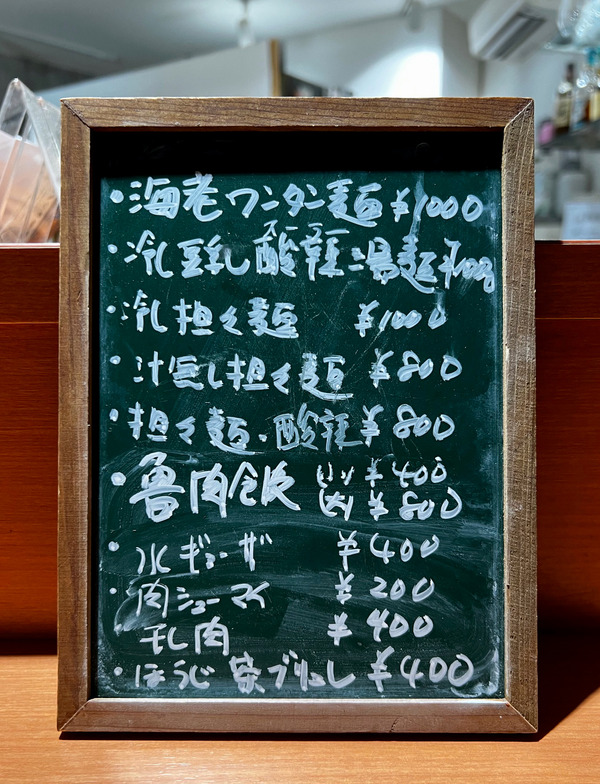 ・海老ワンタン麺 ¥1000
スーラー
・冷豆乳酸辣湯麺 ¥1000
・冷担々麺 ¥1000
・汁無し担々麺 ¥800
・担々麺・酸辣 ¥800
・魯肉飯 (小) ¥400
(大) ¥800
・水ギョーザ ¥400
・肉シューマイ ¥200
干し肉 ¥400
・ほうじ茶プリン ¥400